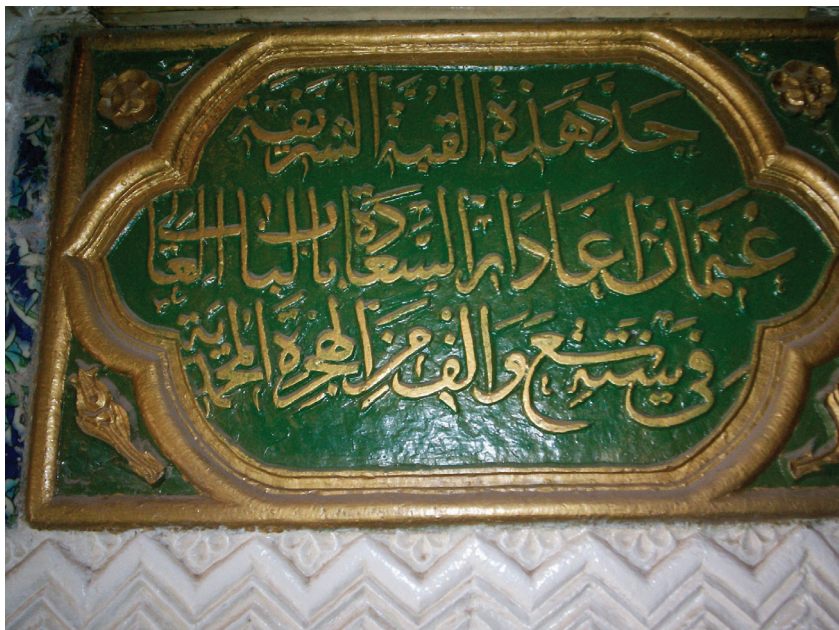 جدد هذه القبة الشريفة
عثمان اغا دار السعادة بالباب العالي
في سنة تسع والف من الهجرة المحمدية